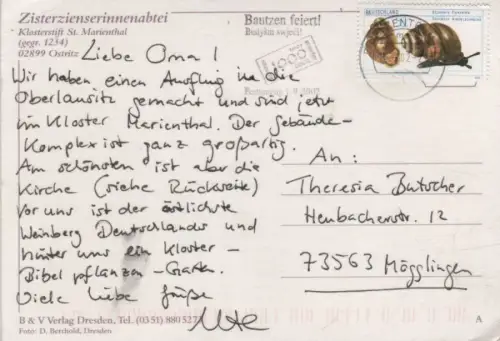 Zisterzienserinnenabtei
Klosterstift St. Marienthal
(gegr. 1234)
02899 Ostritz
Bautzen feiert!
Budyšin swjeći!
1000
Liebe Oma!
Wir haben einen Ausflug in die
Oberlausitz gemacht und sind jetzt
im Kloster Marienthal. Der Gebäude-
komplex ist ganz großartig.
Am schönsten ist aber die
Kirche (siehe Rückseite)
Vor uns ist der östlichste
Weinberg Deutschlands und
hinter uns ein Kloster-
Bibelpflanzen-Garten.
Viele liebe Grüße
Ute
An:
Theresia Butscher
Heubacherstr. 12
73563 Mögglingen
B & V Verlag Dresden, Tel. (03 51) 880 5273
Foto: D. Berthold, Dresden
A